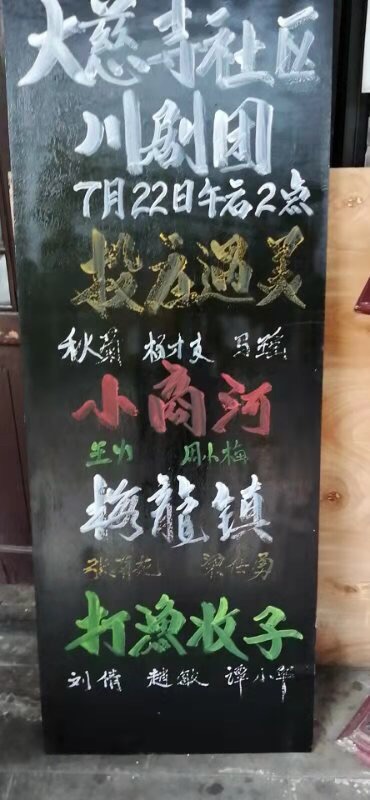 大慈寺社区
川剧团
7月22日午后2点
投庄遇美
秋菊 杨才文 马强
小商河
王少 周小梅
梅龍镇
梁仕勇
打漁收子
刘倩 趙敏 谭小平